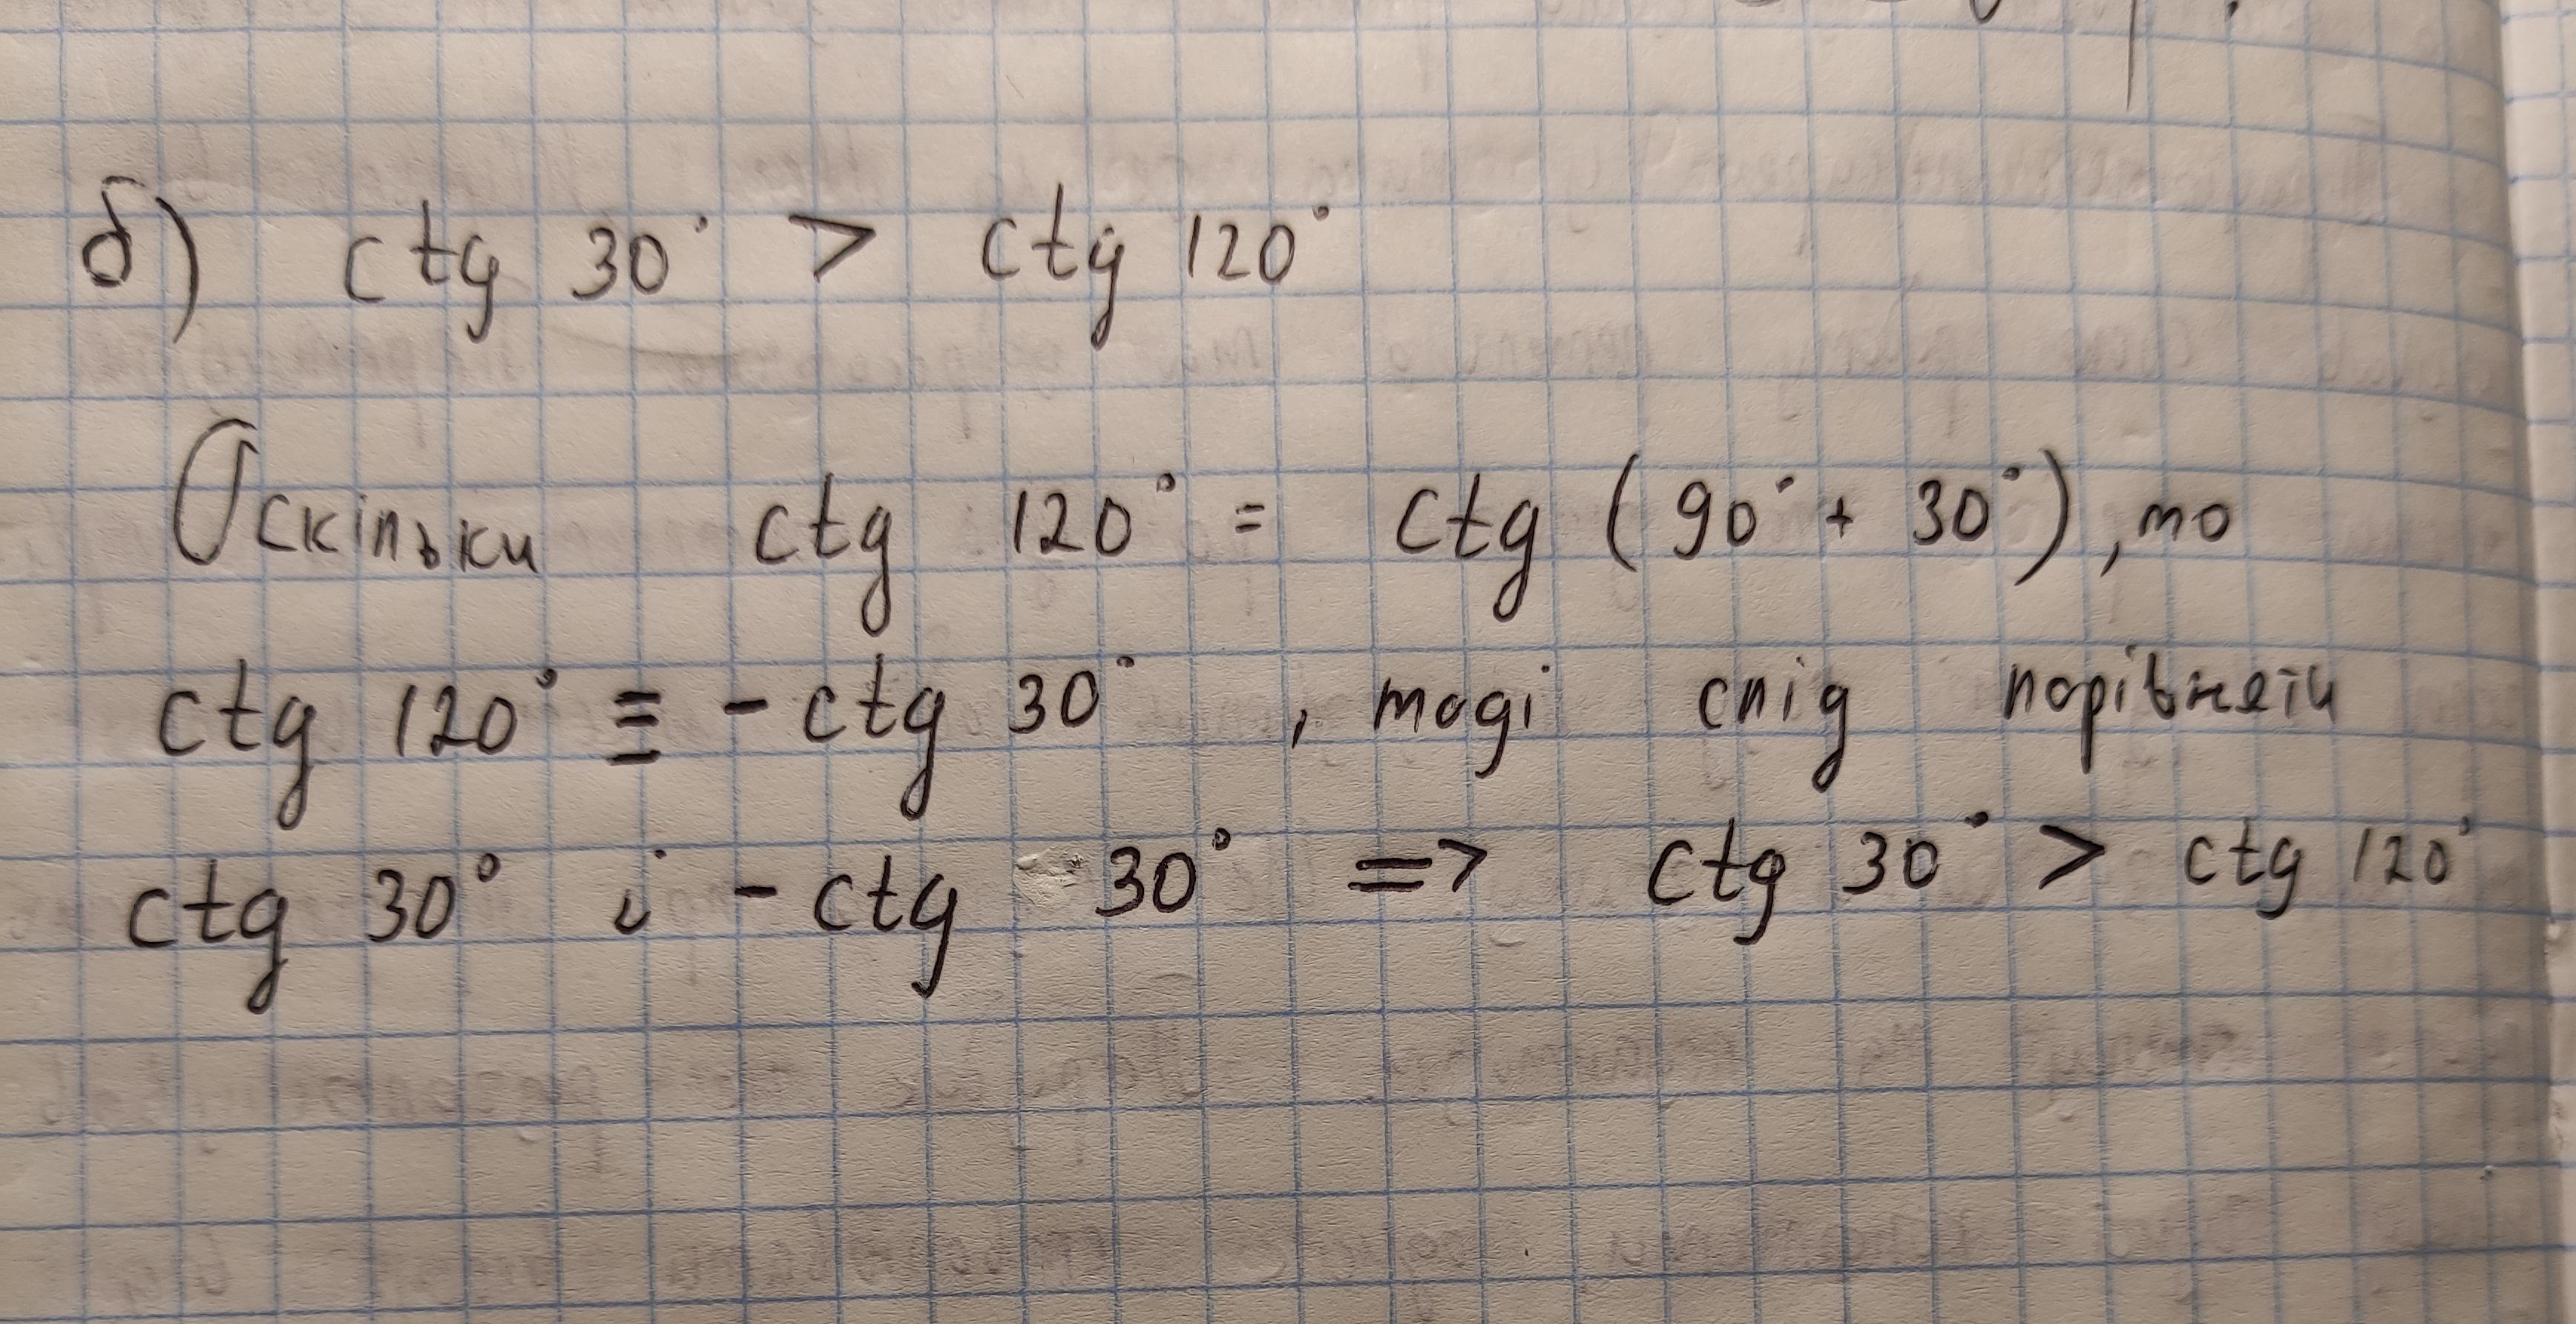 б) ctg 30° > ctg 120°
Оскільки ctg 120° = ctg (90° + 30°), то
ctg 120° ≡ - ctg 30°, тоді слід порівняти
ctg 30° і - ctg 30° => ctg 30° > ctg 120°